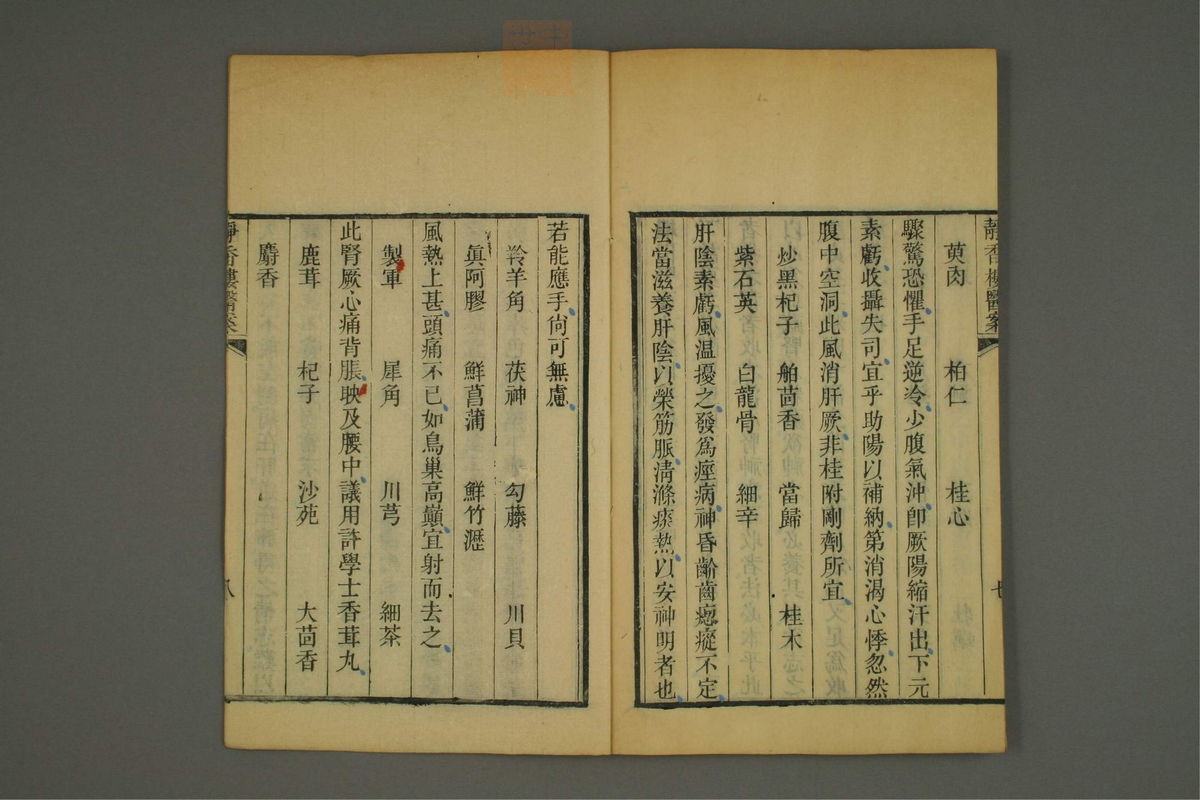 靜香樓醫案
七
萸肉 柏仁 桂心
驟驚恐懼手足逆冷少腹氣沖卽厥陽縮汗出下元
素虧收攝失司宜乎助陽以補納第消渴心悸忽然
腹中空洞此風消肝厥非桂附剛劑所宜
炒黑杞子 舶茴香 當歸 桂木
紫石英 白龍骨 細辛
肝陰素虧風温擾之發爲痙病神昏齘齒瘛瘲不定
法當滋養肝陰以榮筋脈淸滌痰熱以安神明者也
若能應手尙可無慮
羚羊角 茯神 勾藤 川貝
眞阿膠 鮮菖蒲 鮮竹瀝
風熱上甚頭痛不已如鳥巢高巓宜射而去之
製軍 犀角 川芎 細茶
此腎厥心痛背脹映及腰中議用許學士香茸丸
鹿茸 杞子 沙苑 大茴香
麝香
靜香樓醫案
八